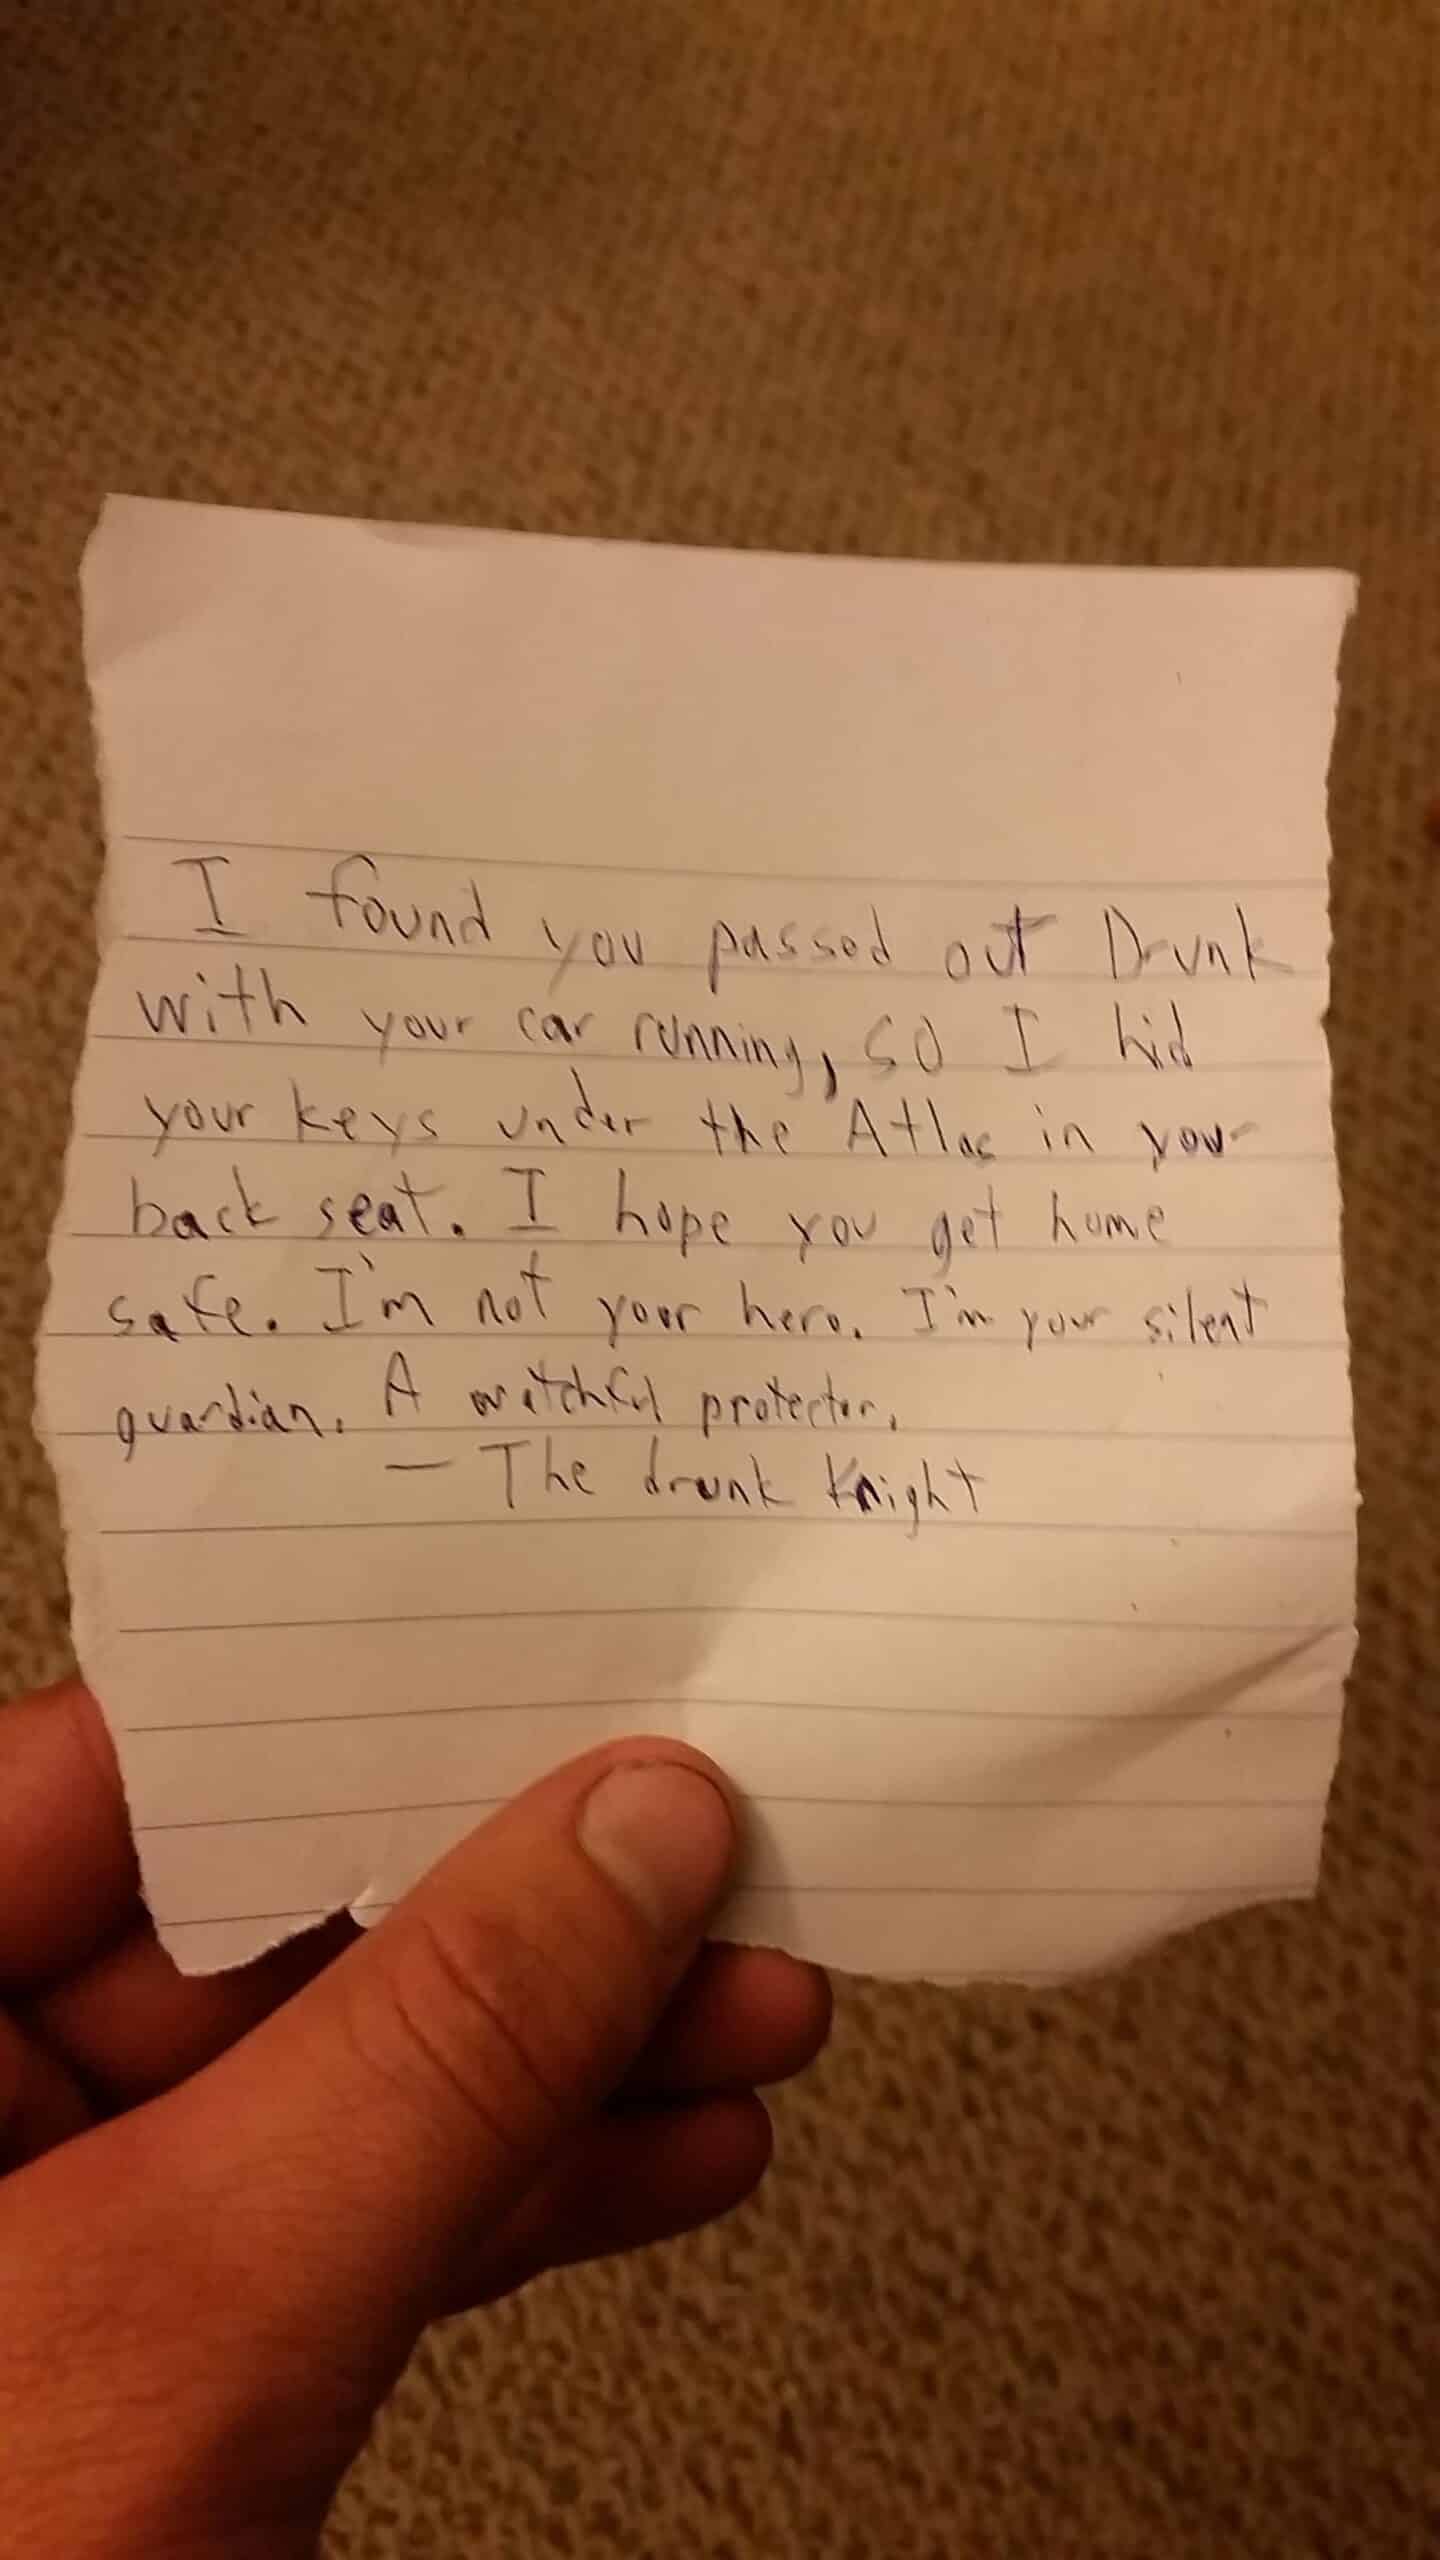 I found you passed out Drunk
with your car running, so I hid
your keys under the Atlas in your
back seat. I hope you get home
safe. I'm not your hero. I'm your silent
guardian. A watchful protector.
— The drunk Knight